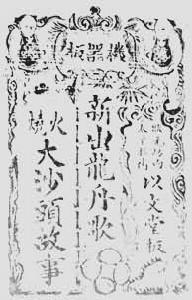 機器板
以文堂板
新出龍舟歌
火燒大沙頭故事